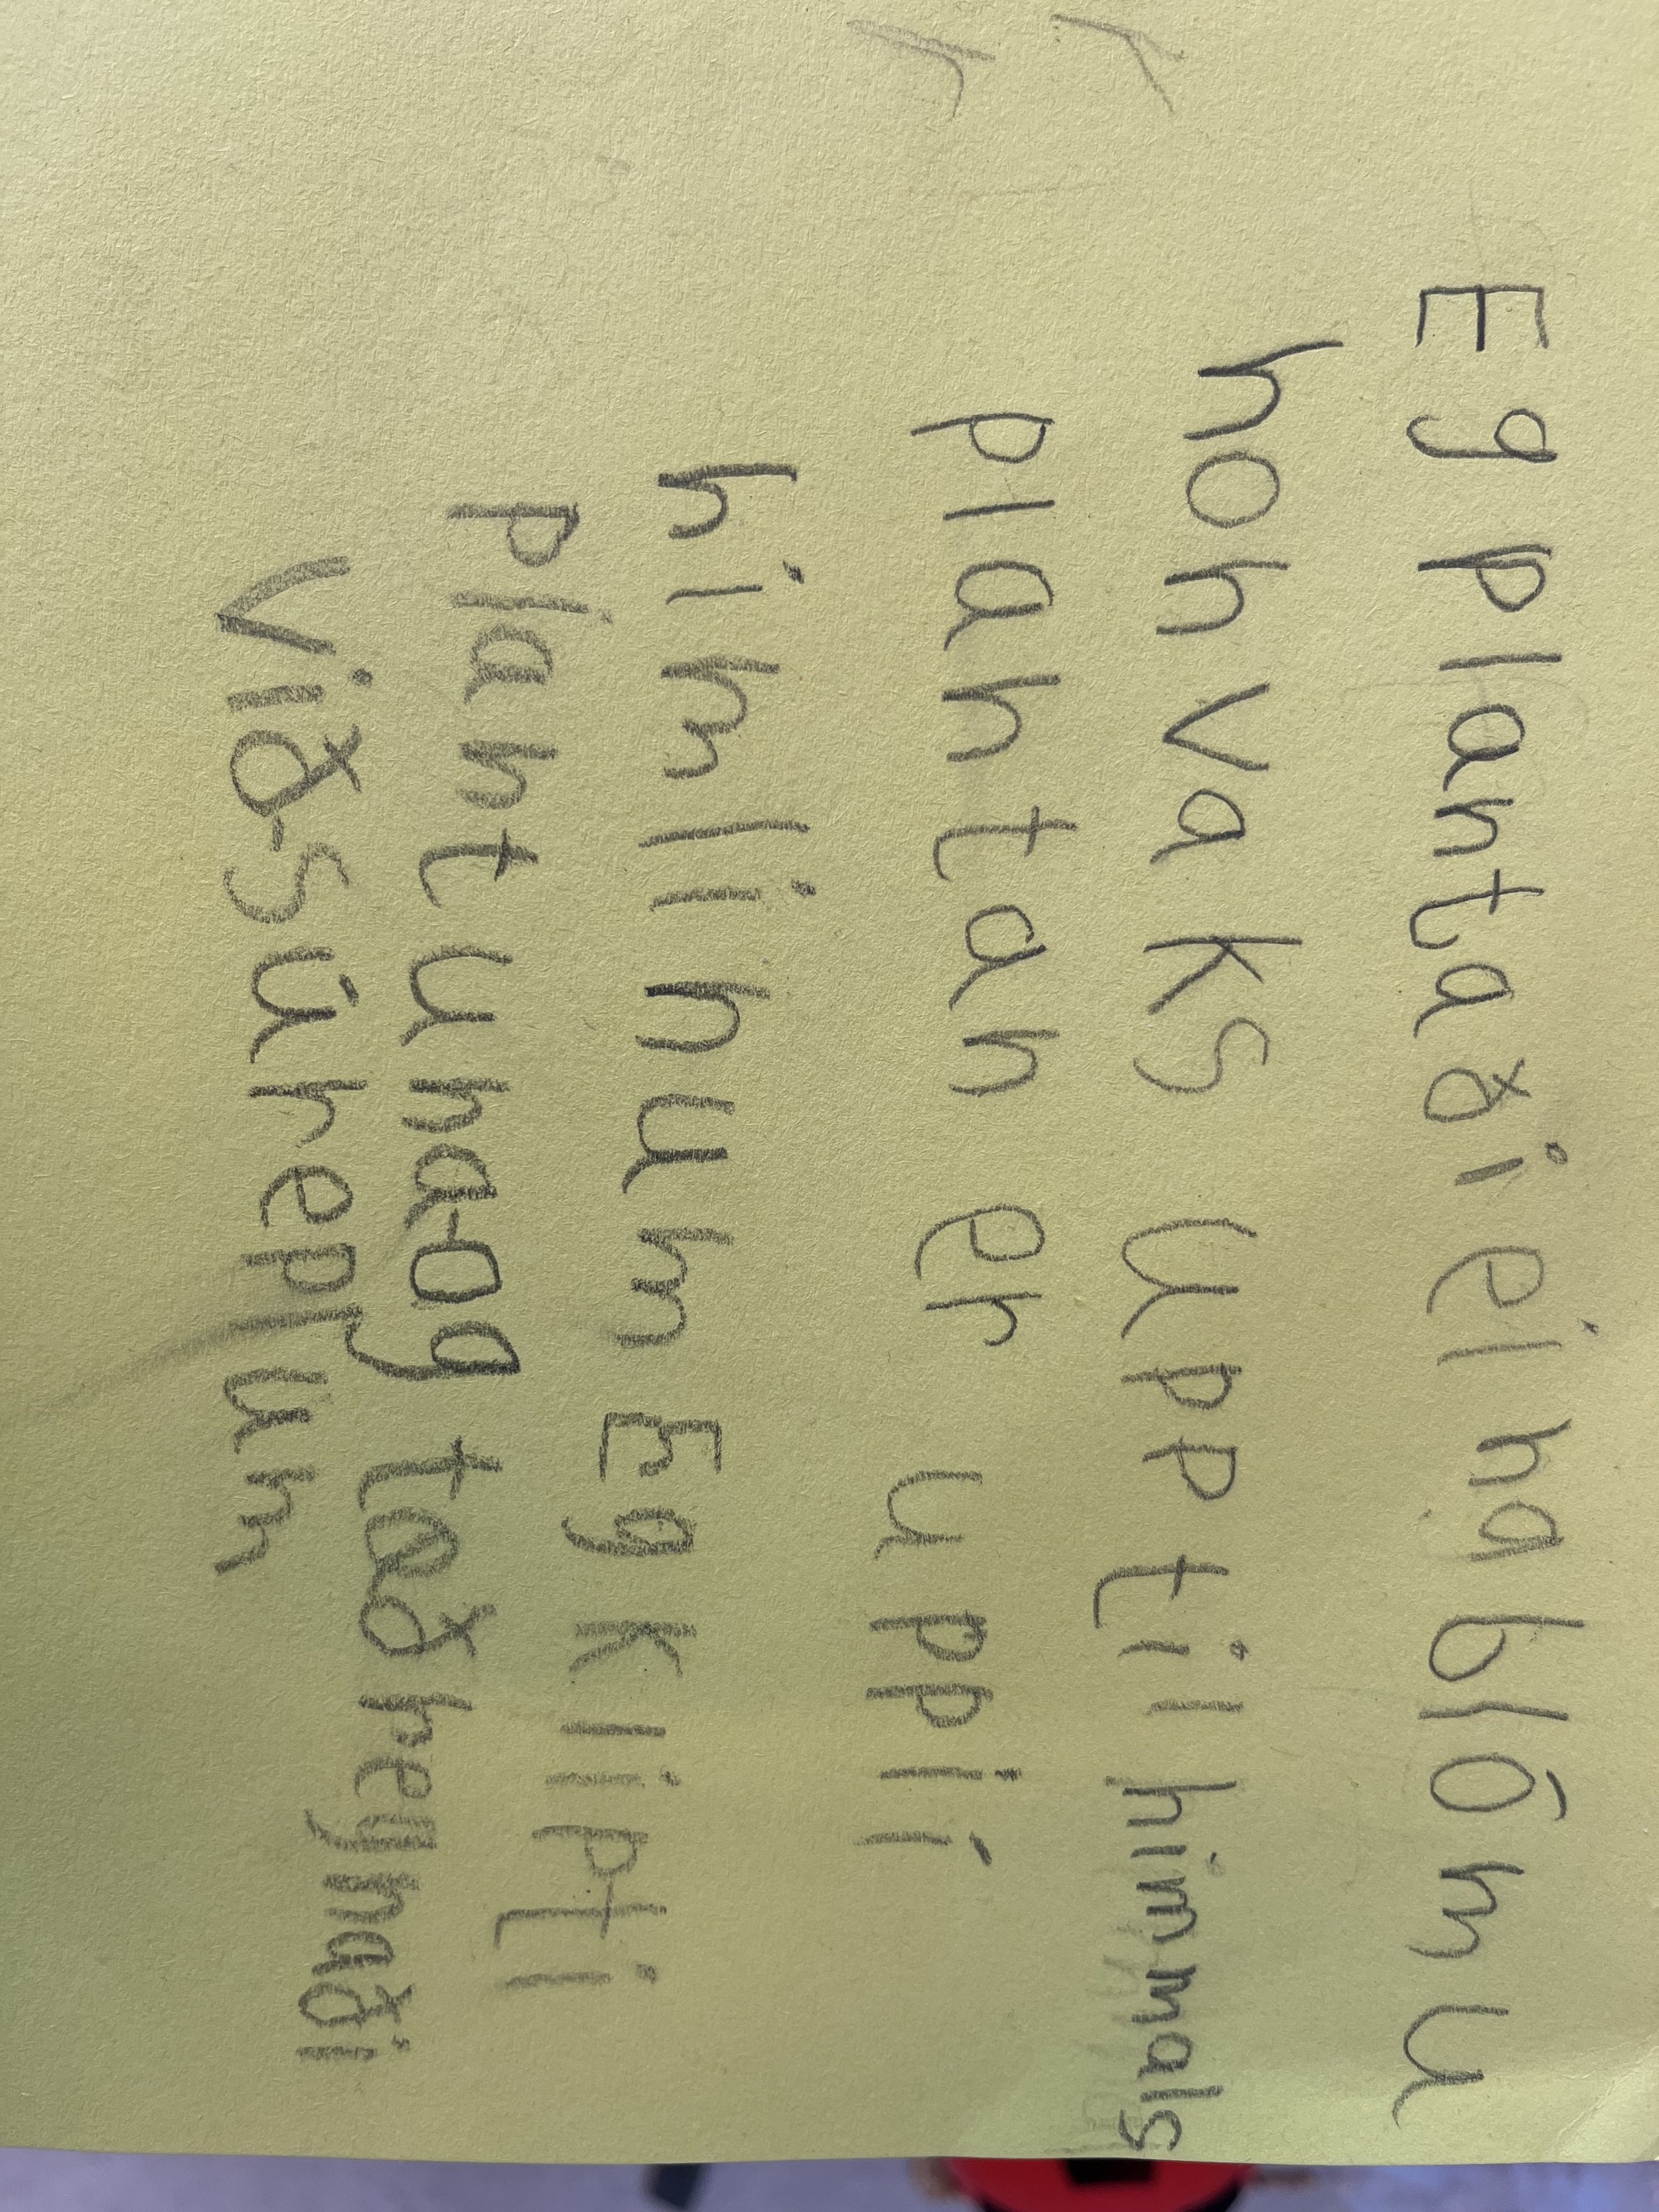 Eg plantaði eina blómu
hon vaks upp til himmals
plantan er uppií
himlinum Eg klipti
plantuna-og tað regnaði
Við-súreplum